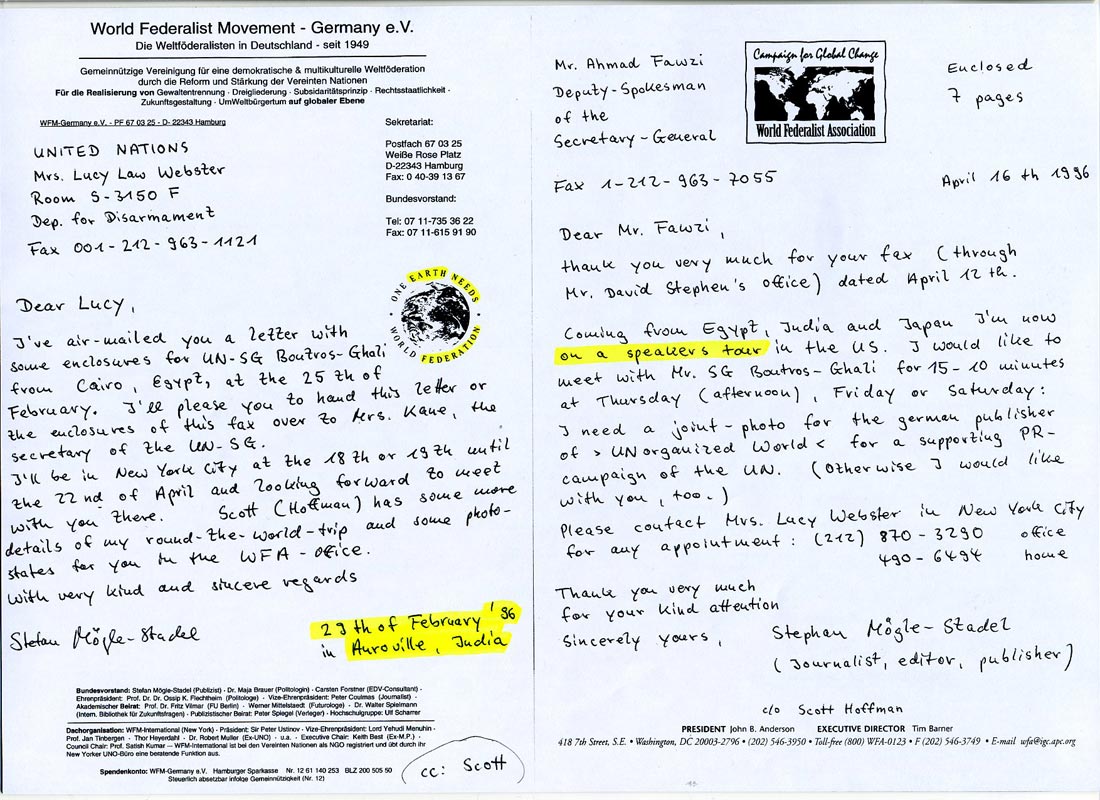 World Federalist Movement - Germany e.V.
Die Weltföderalisten in Deutschland - seit 1949
Gemeinnützige Vereinigung für eine demokratische & multikulturelle Weltföderation
durch die Reform und Stärkung der Vereinten Nationen
Für die Realisierung von Gewaltentrennung · Dreigliederung · Subsidaritätsprinzip · Rechtsstaatlichkeit ·
Zukunftsgestaltung · UmWeltbürgertum auf globaler Ebene
WFM-Germany e.V. - PF 67 03 25 - D- 22343 Hamburg
UNITED NATIONS
Mrs. Lucy Law Webster
Room S-3150 F
Dep. for Disarmament
Fax 001-212-963-1121
Sekretariat:
Postfach 67 03 25
Weiße Rose Platz
D-22343 Hamburg
Fax: 0 40-39 13 67
Bundesvorstand:
Tel: 07 11-735 36 22
Fax: 07 11-615 91 90
ONE EARTH NEEDS
WORLD FEDERATION
Dear Lucy,
I've air-mailed you a letter with
some enclosures for UN-SG Boutros-Ghali
from Cairo, Egypt, at the 25 th of
February. I'll please you to hand this letter or
the enclosures of this fax over to Mrs. Kane, the
secretary of the UN-SG.
I'll be in New York City at the 18 th or 19 th until
the 22 nd of April and looking forward to meet
with you there. Scott (Hoffman) has some more
details of my round-the-world-trip and some photo-
states for you in the WFA-office.
With very kind and sincere regards
Stefan Mögle-Stadel
29 th of February '96
in Auroville, India
Bundesvorstand: Stefan Mögle-Stadel (Publizist) · Dr. Maja Brauer (Politologin) · Carsten Forstner (EDV-Consultant) ·
Ehrenpräsident: Prof. Dr. Dr. Ossip K. Flechtheim (Politologe) · Vize-Ehrenpräsident: Peter Coulmas (Journalist) ·
Akademischer Beirat: Prof. Dr. Fritz Vilmar (FU Berlin) · Werner Mittelstaedt (Futurologe) · Dr. Walter Spielmann
(Intern. Bibliothek für Zukunftsfragen) · Publizistischer Beirat: Peter Spiegel (Verleger) · Hochschulgruppe: Ulf Scharrer
Dachorganisation: WFM-International (New York) · Präsident: Sir Peter Ustinov · Vize-Ehrenpräsident: Lord Yehudi Menuhin ·
Prof. Jan Tinbergen · Thor Heyerdahl · Dr. Robert Muller (Ex-UNO) · u.a. · Executive Chair: Keith Best (Ex-M.P.) ·
Council Chair: Prof. Satish Kumar — WFM-International ist bei den Vereinten Nationen als NGO registriert und übt durch ihr
New Yorker UNO-Büro eine beratende Funktion aus.
Spendenkonto: WFM-Germany e.V. Hamburger Sparkasse Nr. 12 61 140 253 BLZ 200 505 50
Steuerlich absetzbar infolge Gemeinnützigkeit (Nr. 12)
cc: Scott
Mr. Ahmad Fawzi
Deputy-Spokesman
of the
Secretary-General
Fax 1-212-963-7055
Campaign for Global Change
World Federalist Association
Enclosed
7 pages
April 16 th 1996
Dear Mr. Fawzi,
thank you very much for your fax (through
Mr. David Stephen's office) dated April 12 th.
Coming from Egypt, India and Japan I'm now
on a speakers tour in the US. I would like to
meet with Mr. SG Boutros-Ghali for 15-10 minutes
at Thursday (afternoon), Friday or Saturday:
I need a joint-photo for the german publisher
of > UNorganized World < for a supporting PR-
campaign of the UN. (Otherwise I would like
with you, too.)
Please contact Mrs. Lucy Webster in New York City
for any appointment: (212) 870-3290 office
490-6494 home
Thank you very much
for your kind attention
Sincerely yours,
Stephan Mögle-Stadel
(Journalist, editor, publisher)
c/o Scott Hoffman
PRESIDENT John B. Anderson EXECUTIVE DIRECTOR Tim Barner
418 7th Street, S.E. • Washington, DC 20003-2796 • (202) 546-3950 • Toll-free (800) WFA-0123 • F (202) 546-3749 • E-mail wfa@igc.apc.org